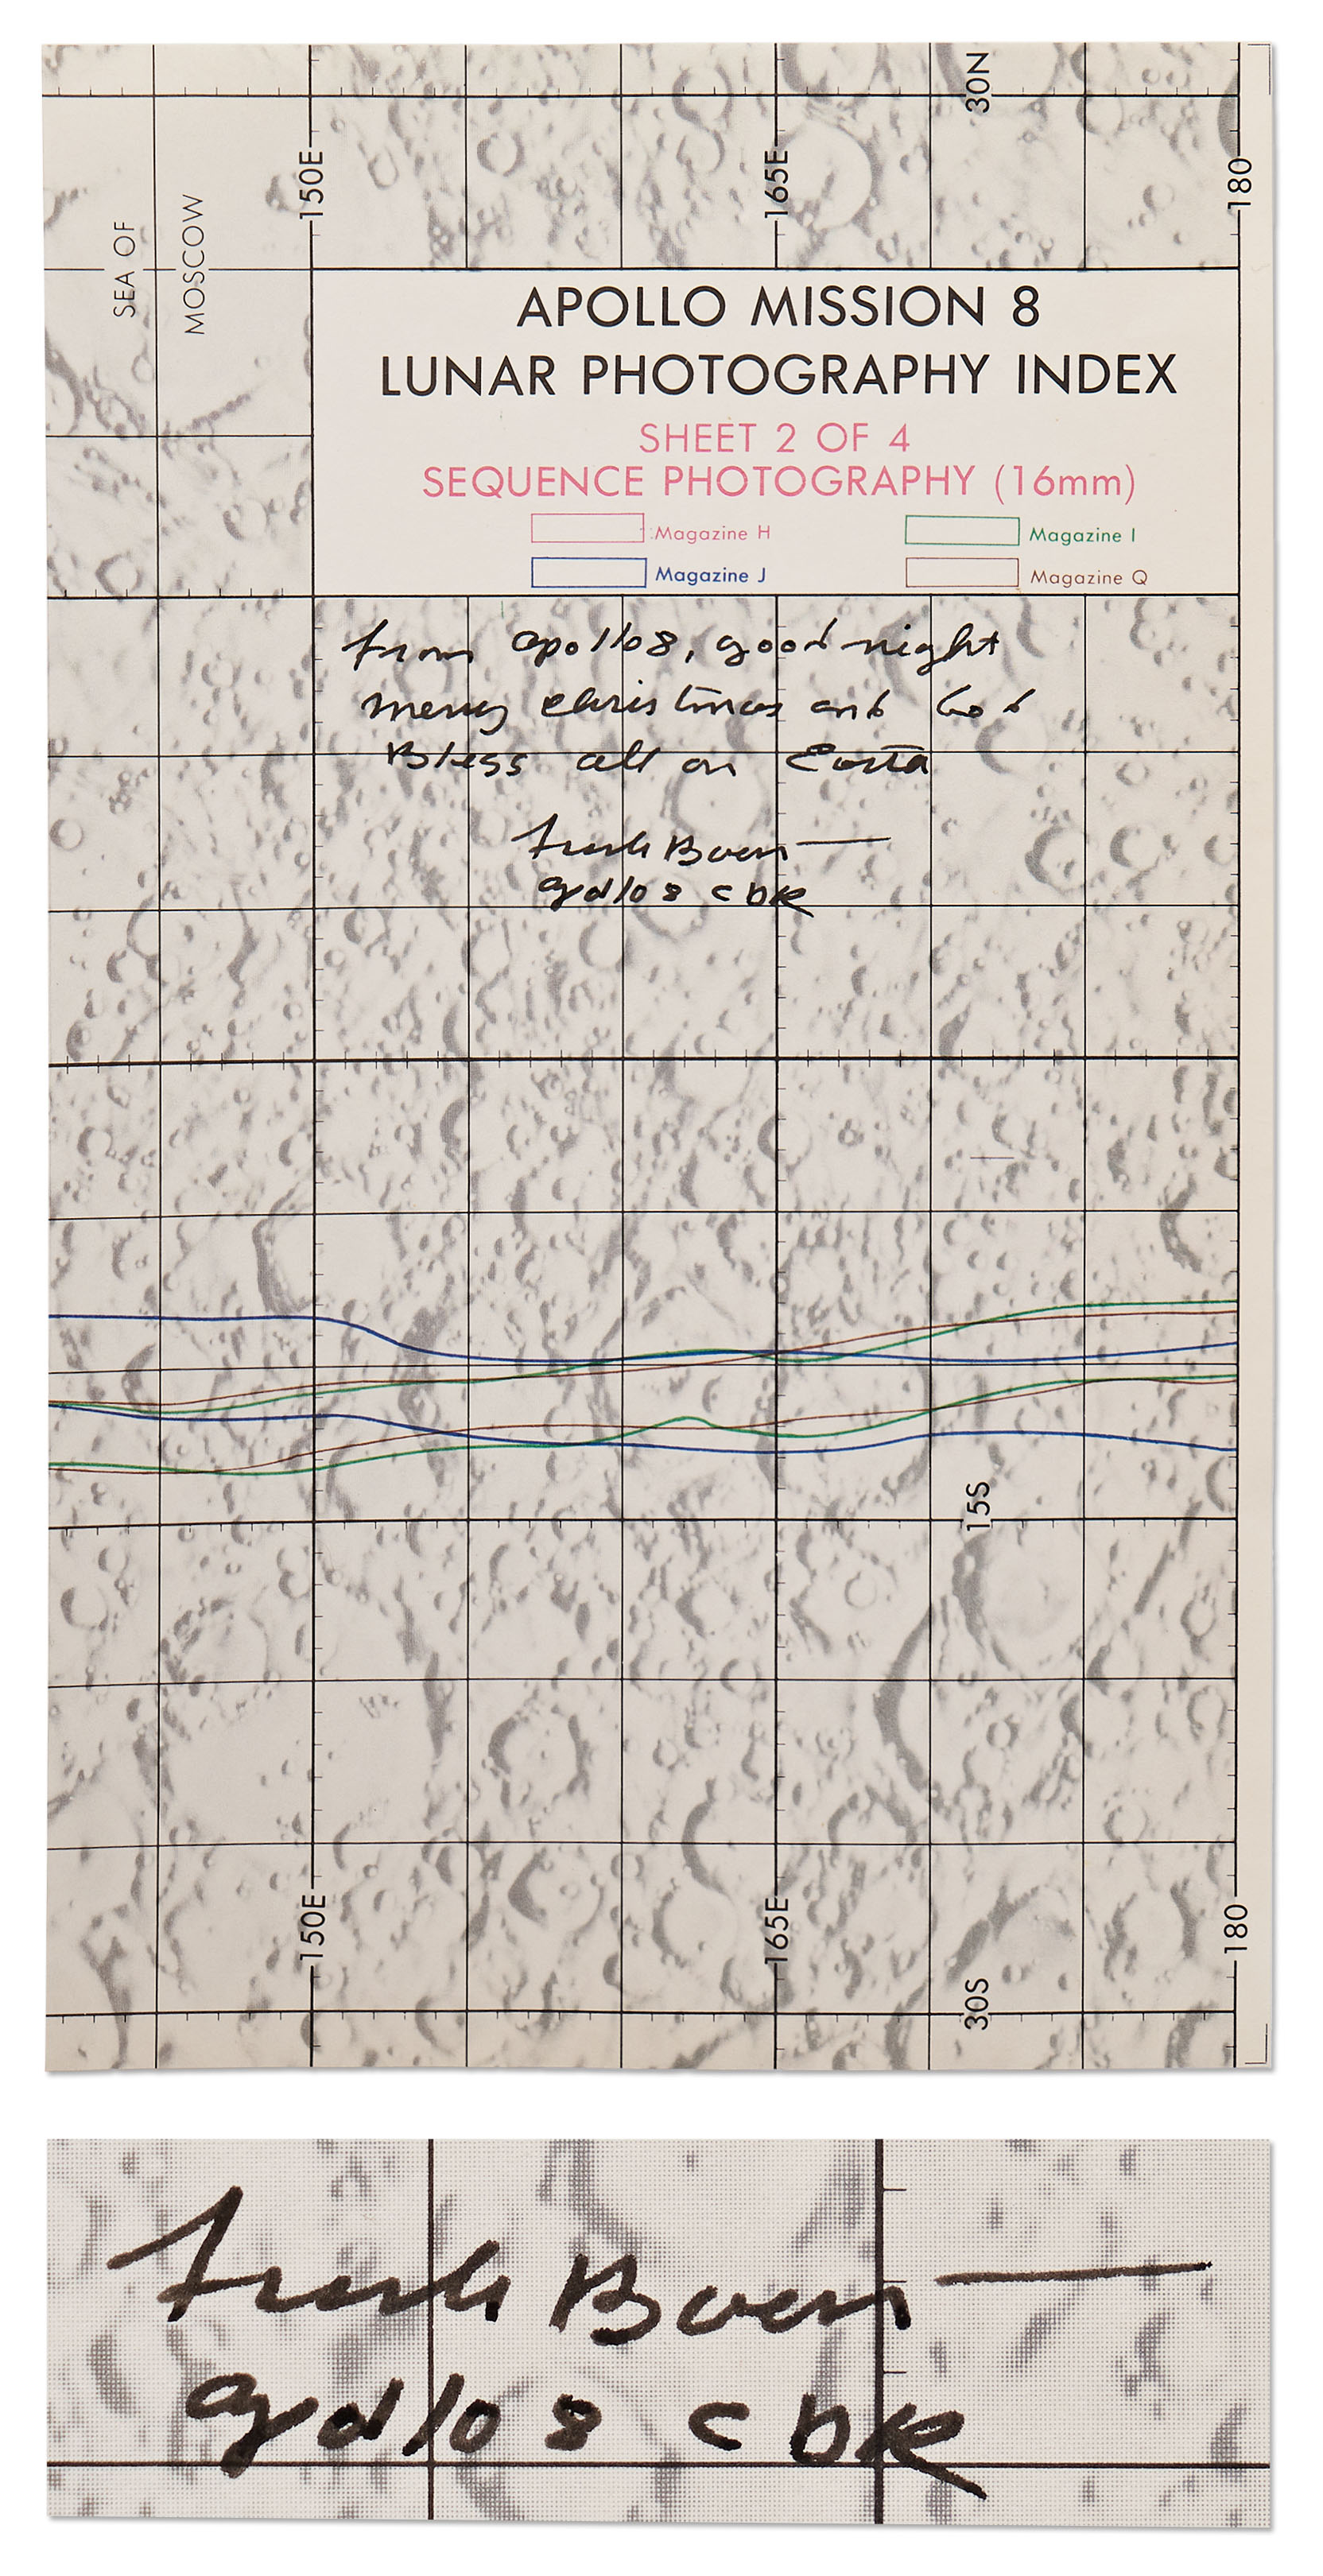 30N
150E
165E
180
SEA OF
MOSCOW
APOLLO MISSION 8
LUNAR PHOTOGRAPHY INDEX
SHEET 2 OF 4
SEQUENCE PHOTOGRAPHY (16mm)
Magazine H
Magazine I
Magazine J
Magazine Q
from apollo 8, good night
merry christmas and God
Bless all on Earth
Frank Borman
apollo 8 CDR
15S
150E
165E
180
30S
Frank Borman
apollo 8 CDR